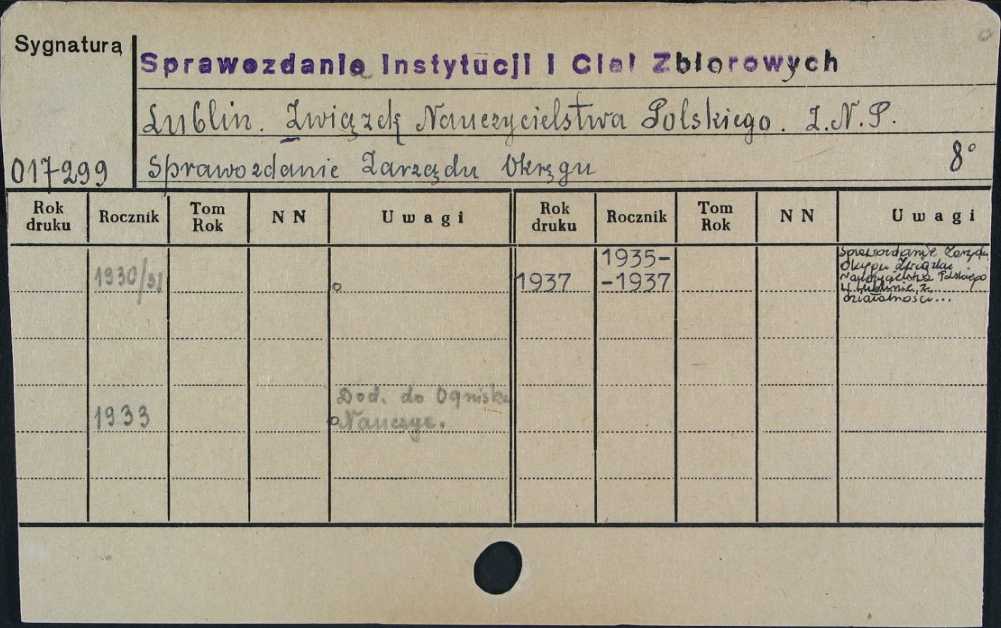 Sygnatura
Sprawozdanie Instytucji i Ciał Zbiorowych
Lublin. Związek Nauczycielstwa Polskiego. Z.N.P.
017299 Sprawozdanie Zarządu Okręgu 8°
Rok druku Rocznik Tom Rok N N Uwagi Rok druku Rocznik Tom Rok N N Uwagi
1930/31
1937 1935-
-1937
Sprawozdanie Zarządu
Okręgu Związku
Nauczycielstwa Polskiego
w Lublinie, z
działalności...
1933 Dod. do Ogniska
Nauczyc.